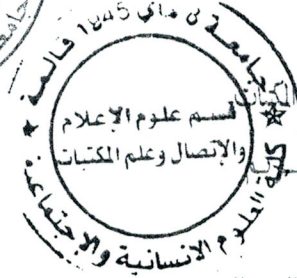 جامعة 8 ماي 1945 قالمة
قسم علوم الإعلام
والإتصال وعلم المكتبات
كلية العلوم الانسانية والإجتماعية